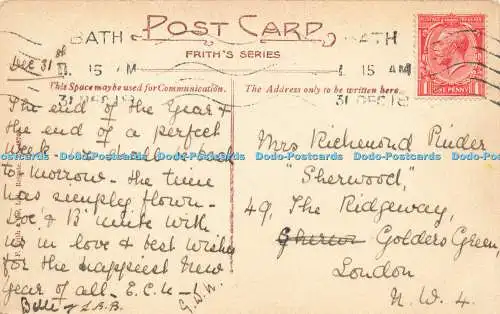 POST CARD
FRITH'S SERIES
BATH
15 AM
31 DEC 18
BATH
15 AM
31 DEC 18
POSTAGE REVENUE
1 ONE PENNY 1
Dec 31st
This Space may be used for Communication.
The Address only to be written here.
The end of the Year &
the end of a perfect
week - we
to morrow - the time
has simply flown -
Doc & B' unite with
us in love & best wishes
for the happiest New
Year of all - E.C.U -
Belle & L.R.B.
G.D.W.
Mrs Richmond Pinder
"Sherwood,"
49, The Ridgeway,
Golders Green,
London
N.W. 4.
Do-Postcards Do-Postcards Do-Postcards Do-Postcards Do-Postcards Do-Postcards